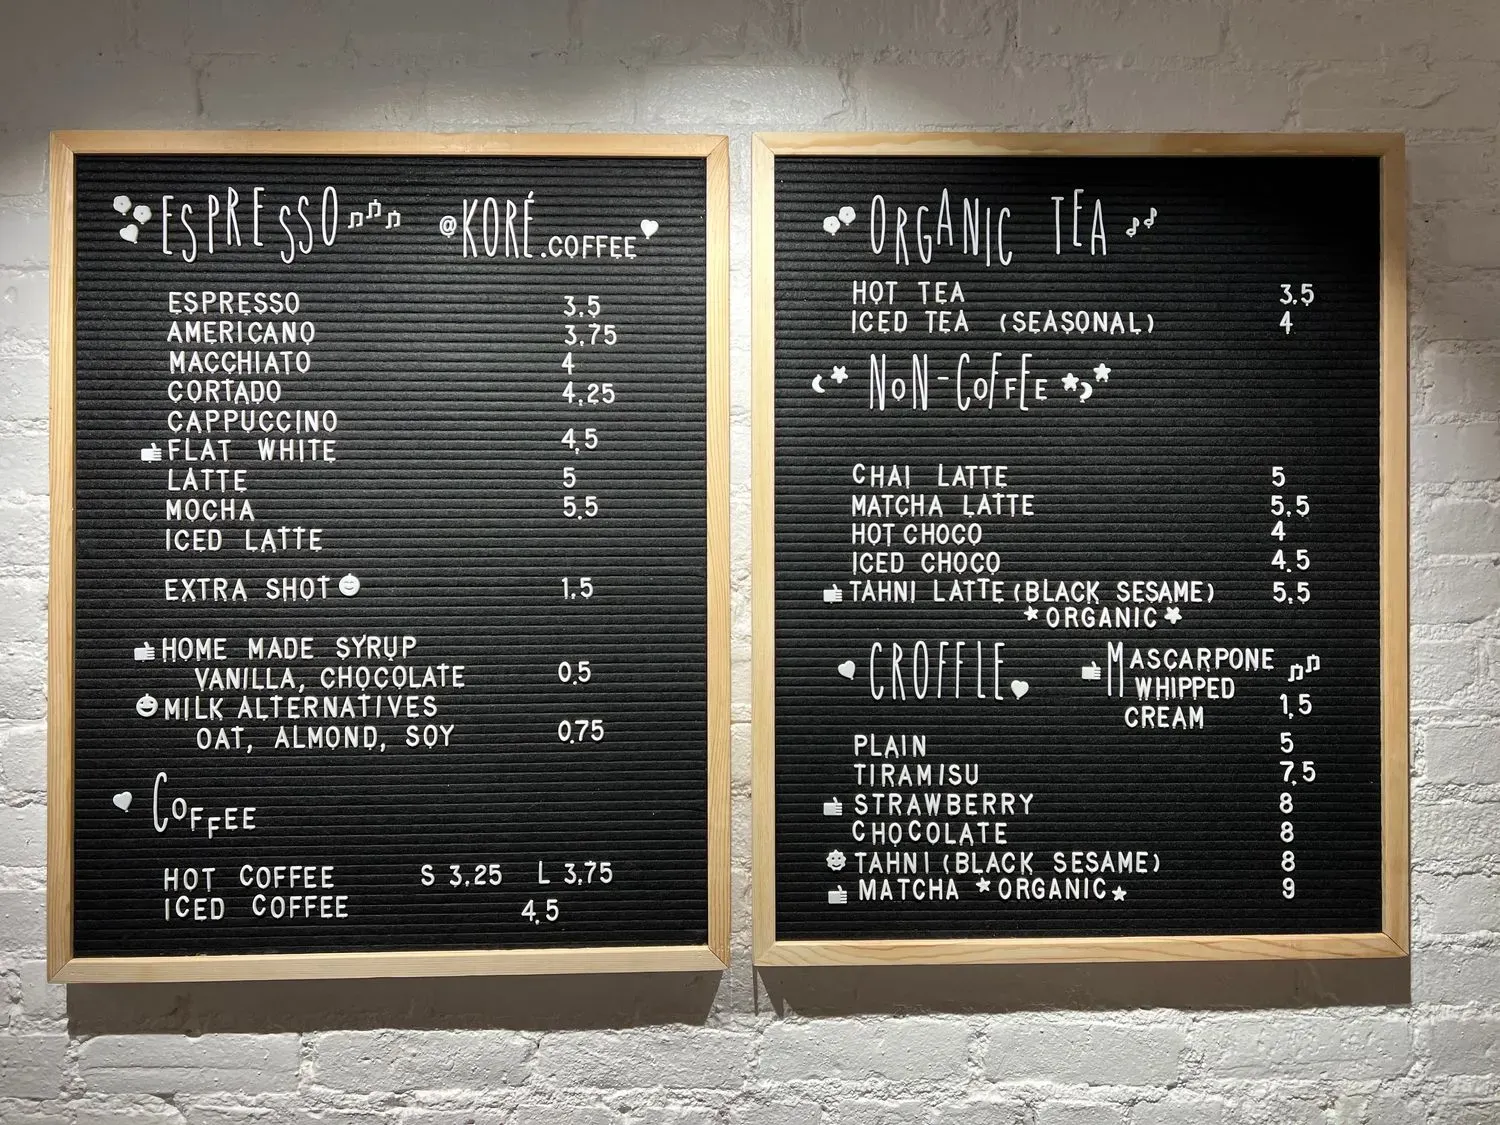 ESPRESSO @KORÉ.COFFEE
ESPRESSO 3.5
AMERICANO 3.75
MACCHIATO 4
CORTADO 4.25
CAPPUCCINO
4.5
FLAT WHITE
LATTE 5
MOCHA 5.5
ICED LATTE
EXTRA SHOT 1.5
HOME MADE SYRUP
VANILLA, CHOCOLATE 0.5
MILK ALTERNATIVES
OAT, ALMOND, SOY 0.75
COFFEE
HOT COFFEE S 3.25 L 3.75
ICED COFFEE 4.5
ORGANIC TEA
HOT TEA 3.5
ICED TEA (SEASONAL) 4
NON-COFFEE
CHAI LATTE 5
MATCHA LATTE 5.5
HOT CHOCO 4
ICED CHOCO 4.5
TAHNI LATTE (BLACK SESAME) 5.5
*ORGANIC*
CROFFLE
MASCARPONE
WHIPPED
CREAM 1.5
PLAIN 5
TIRAMISU 7.5
STRAWBERRY 8
CHOCOLATE 8
TAHNI (BLACK SESAME) 8
MATCHA *ORGANIC* 9